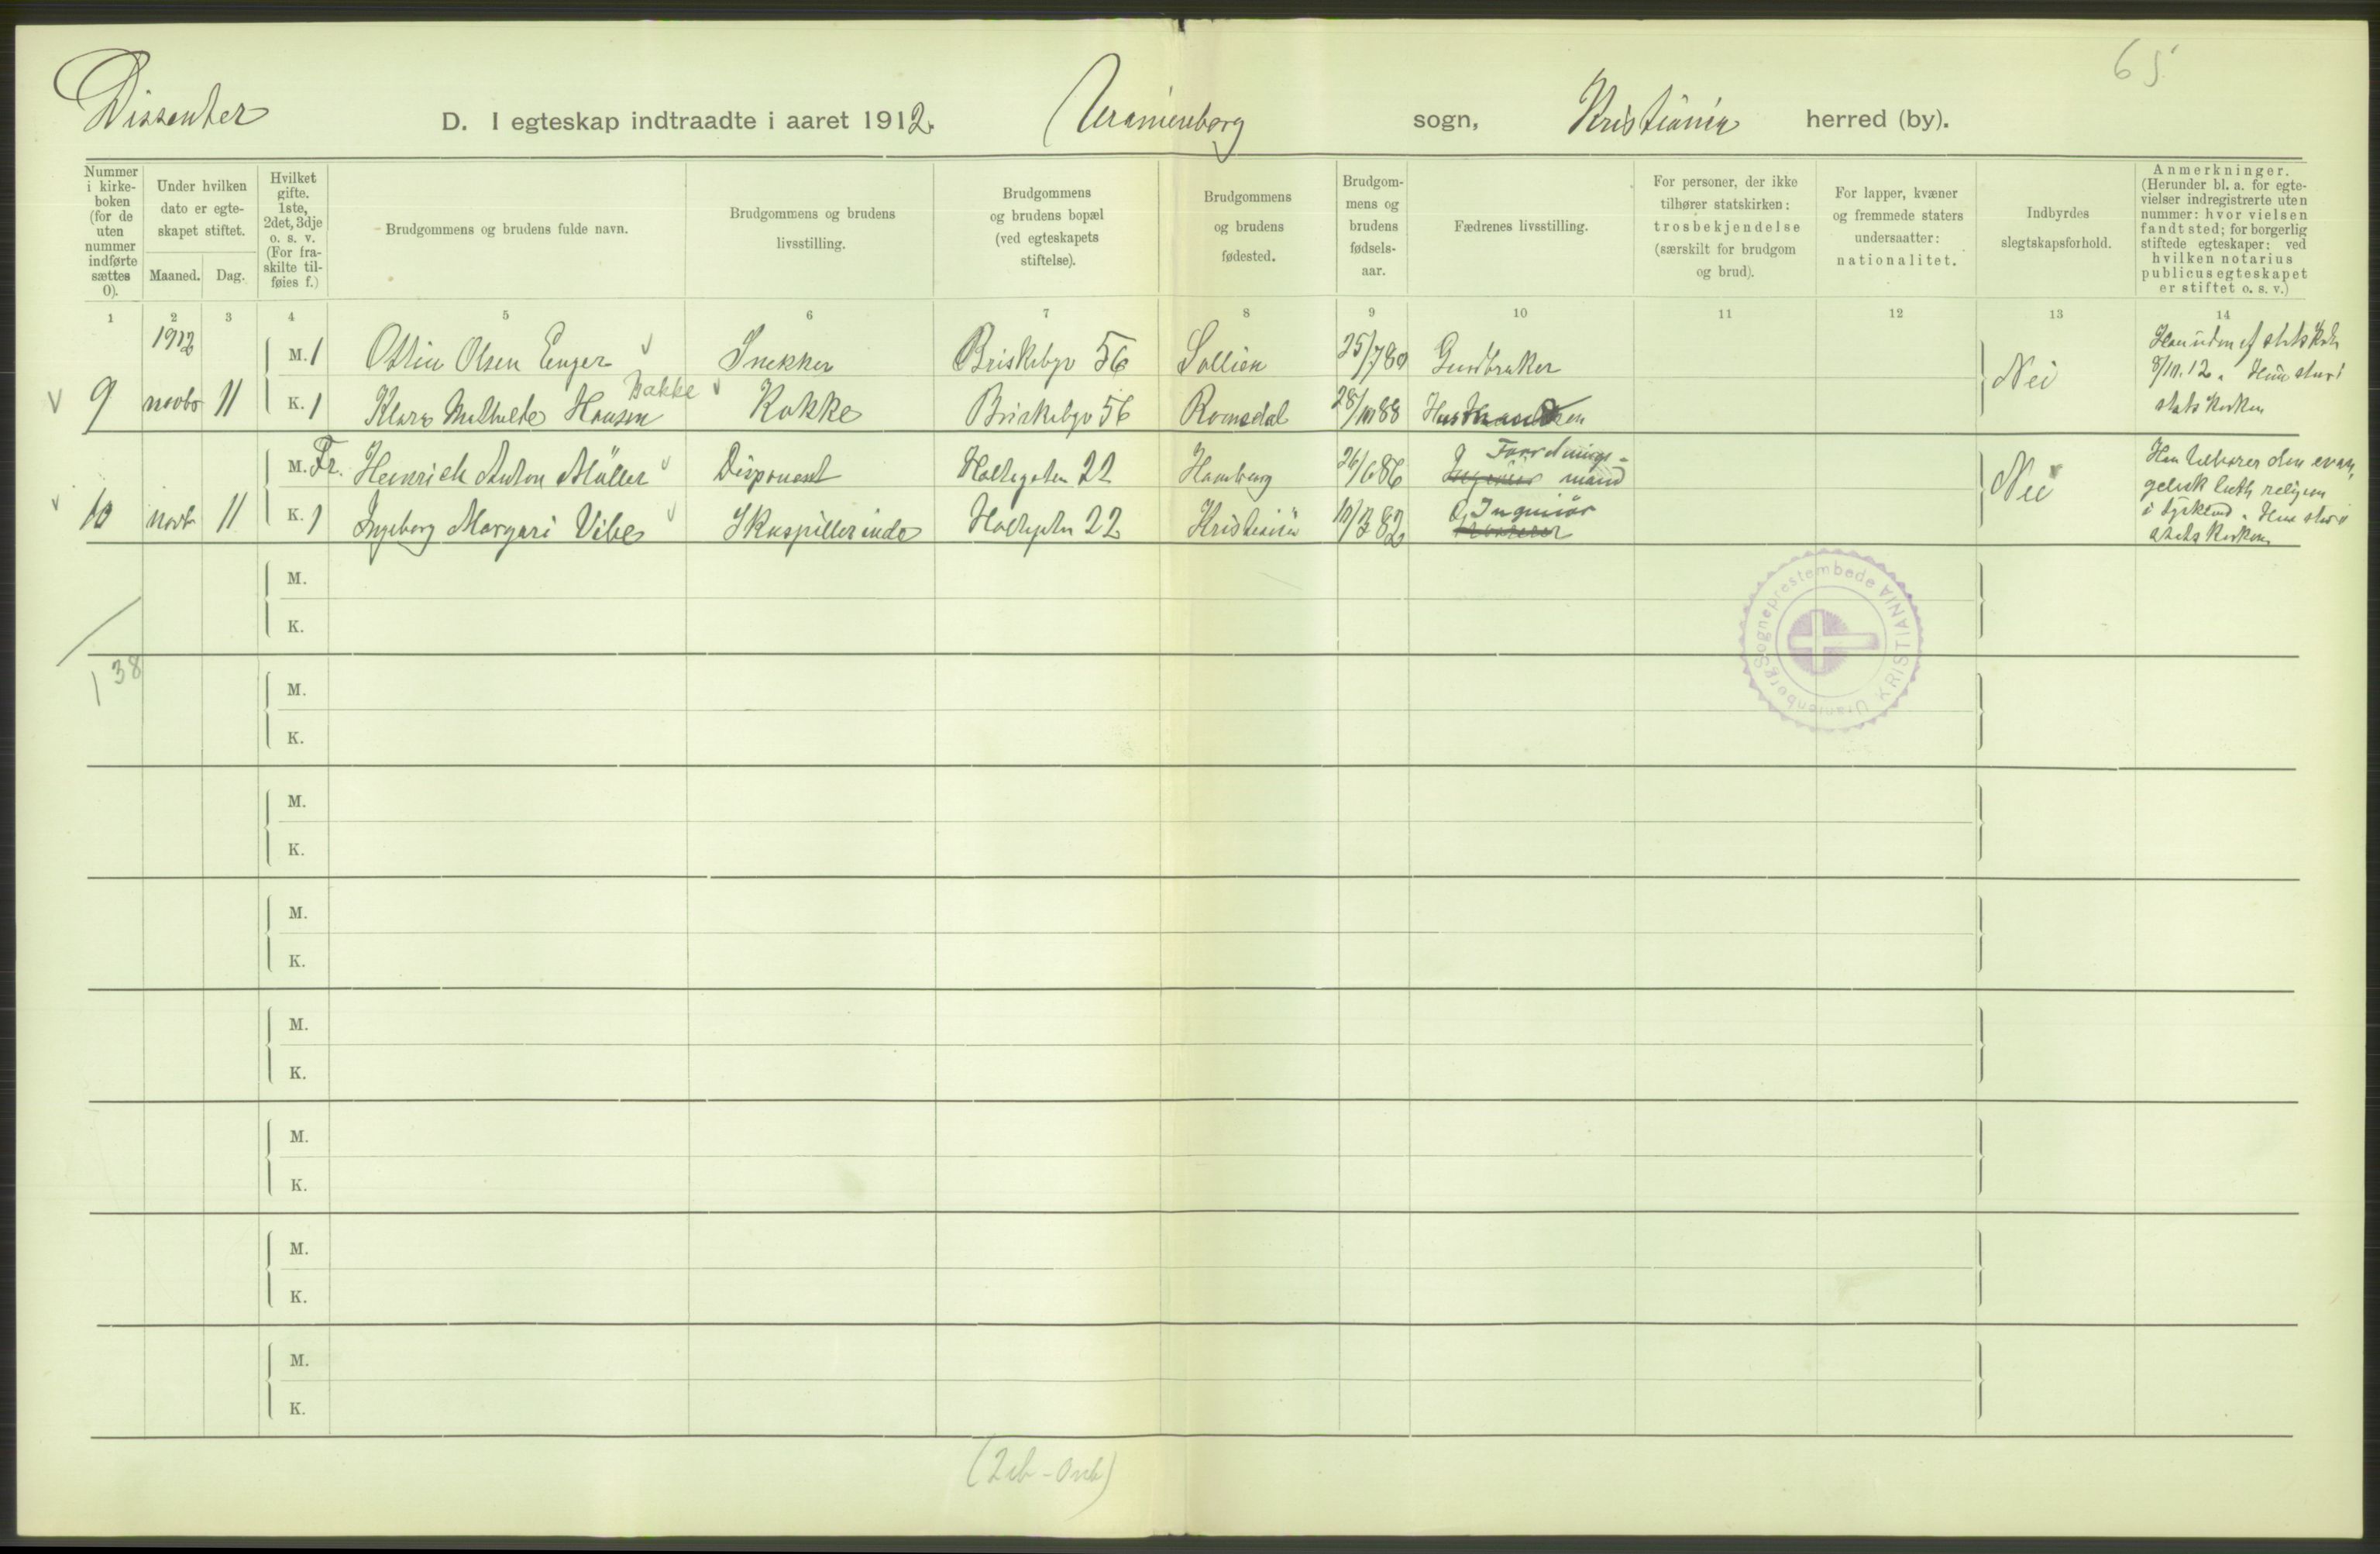 65
Dissenter D. I egteskap indtraadte i aaret 1912. Uranienborg sogn, Kristiania herred (by).
Nummer i kirke-boken (for de uten nummer indførte sættes 0).
Under hvilken dato er egte-skapet stiftet.
Maaned. Dag.
Hvilket gifte. 1ste, 2det, 3dje o. s. v. (For fra-skilte til-føies f.)
Brudgommens og brudens fulde navn.
Brudgommens og brudens livsstilling.
Brudgommens og brudens bopæl (ved egteskapets stiftelse).
Brudgommens og brudens fødested.
Brudgom-mens og brudens fødsels-aar.
Fædrenes livsstilling.
For personer, der ikke tilhører statskirken: trosbekjendelse (særskilt for brudgom og brud).
For lapper, kvæner og fremmede staters undersaatter: nationalitet.
Indbyrdes slegtskapsforhold.
Anmerkninger. (Herunder bl. a. for egte-vielser indregistrerte uten nummer: hvor vielsen fandt sted; for borgerlig stiftede egteskaper: ved hvilken notarius publicus egteskapet er stiftet o. s. v.)
1 2 3 4 5 6 7 8 9 10 11 12 13 14
1912
M. 1 Olsen Enger Snekker Briskebyv 56 Sollien 25/7 80 Gardbruker
9 novbr 11 K. 1 Klara Mathilde Hansen Bakke Kokke Briskebyv 56 Romsdal 28/10 88
Nei
8/10.12. Hun star i
statskirken
M. Fr. Heinrich Anton Müller Disponent Holtegaten 22 Hamburg 26/6 86 Forretnings-mand
10 novb 11 K. 1 Ingeborg Margari Vibe Skuespillerinde Holtegaten 22 Kristiania 82 Ingeniør
Nei
Han tilhører den evan
gelisk luth religion
i Tyskland. Hun star i
statskirken
M.
K.
138
M.
K.
M.
K.
M.
K.
M.
K.
M.
K.
M.
K.
M.
K.
Uranienborg Sogneprestembede KRISTIANIA